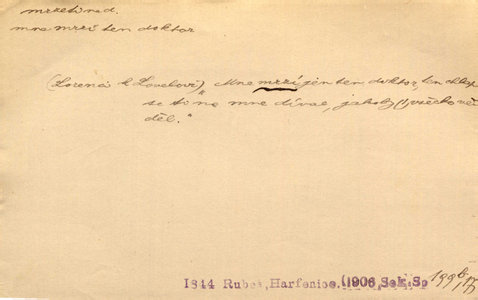 mrzeti ned.
mne mrzí ten doktor
(Lorena k Lovelovi) „Mne mrzí jen ten doktor, ten chlap
se ti na mne dívá, jakoby všecko vě-
děl."
1844 Rubeš, Harfenice. (1906, Sek. Sp